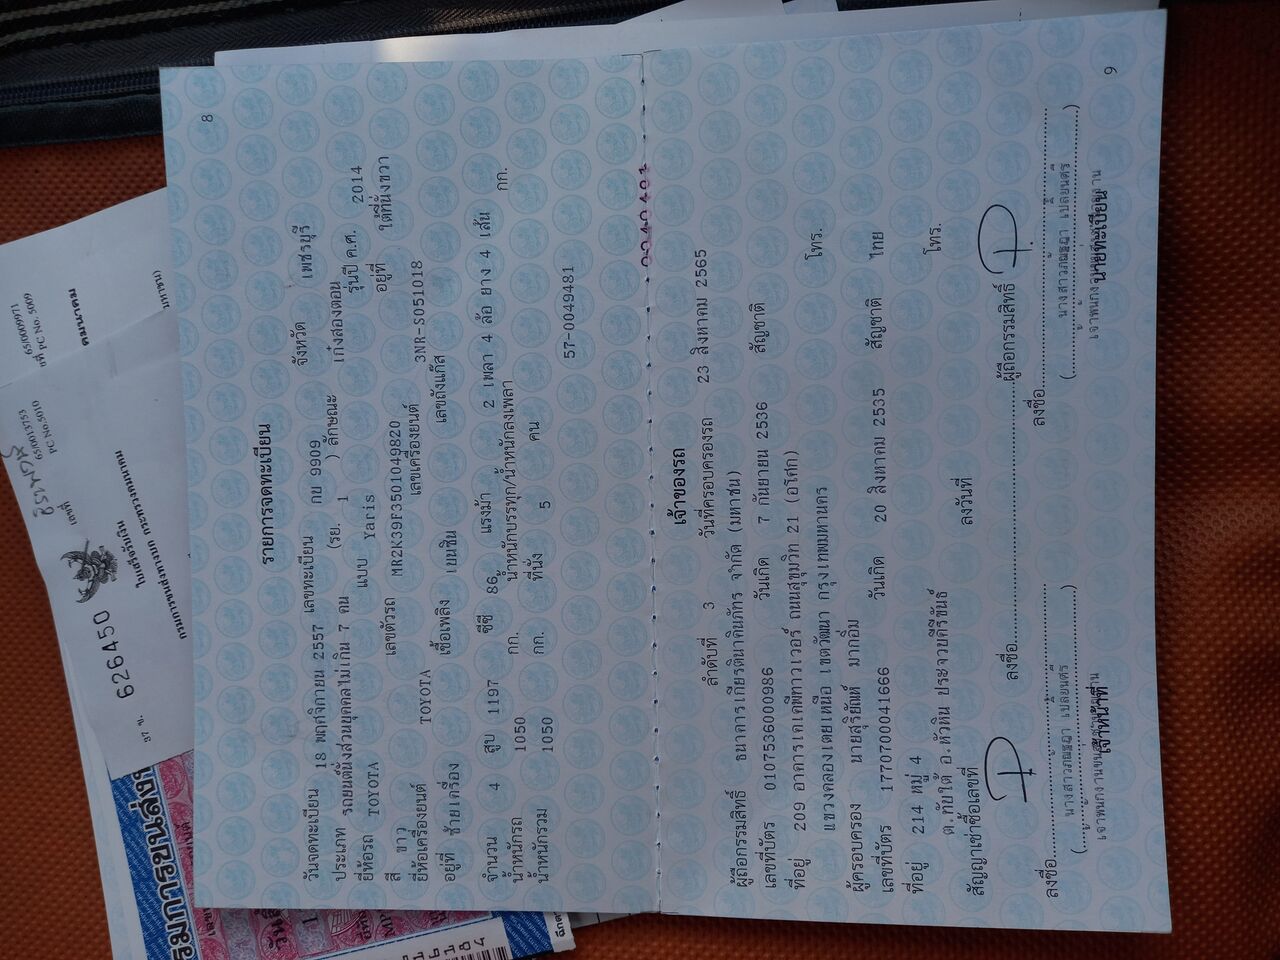 8
รายการจดทะเบียน
วันจดทะเบียน 18 พฤศจิกายน 2557 เลขทะเบียน กบ 9909 จังหวัด เพชรบุรี
ประเภท รถยนต์นั่งส่วนบุคคลไม่เกิน 7 คน (รย. 1 ) ลักษณะ เก๋งสองตอน
ยี่ห้อรถ TOYOTA แบบ Yaris รุ่นปี ค.ศ. 2014
สี ขาว เลขตัวรถ MR2K39F3501049820 อยู่ที่ ใต้ที่นั่งขวา
ยี่ห้อเครื่องยนต์ TOYOTA เลขเครื่องยนต์ 3NR-S051018
อยู่ที่ ซ้ายเครื่อง เชื้อเพลิง เบนซิน เลขถังแก๊ส
จำนวน 4 สูบ 1197 ซีซี 86 แรงม้า 2 เพลา 4 ล้อ ยาง 4 เส้น
น้ำหนักรถ 1050 กก. น้ำหนักบรรทุก/น้ำหนักลงเพลา กก.
น้ำหนักรวม 1050 กก. ที่นั่ง 5 คน
57-0049481
เจ้าของรถ
ลำดับที่ 3 วันที่ครอบครองรถ 23 สิงหาคม 2565
ผู้ถือกรรมสิทธิ์ ธนาคารเกียรตินาคินภัทร จำกัด (มหาชน)
เลขที่บัตร 0107536000986 วันเกิด 7 กันยายน 2536 สัญชาติ
ที่อยู่ 209 อาคารเคเคพีทาวเวอร์ ถนนสุขุมวิท 21 (อโศก)
แขวงคลองเตยเหนือ เขตวัฒนา กรุงเทพมหานคร โทร.
ผู้ครอบครอง นายสุริยัณห์ มากอิ่ม
เลขที่บัตร 1770700041666 วันเกิด 20 สิงหาคม 2535 สัญชาติ ไทย
ที่อยู่ 214 หมู่ 4
ต.ทับใต้ อ.หัวหิน ประจวบคีรีขันธ์ โทร.
สัญญาเช่าซื้อเลขที่ ลงวันที่
ลงชื่อ ผู้ถือกรรมสิทธิ์
ลงชื่อ ลงชื่อ
เจ้าหน้าที่ นายทะเบียน
9
626450
ใบเสร็จรับเงิน
กรมการขนส่งทางบก กระทรวงคมนาคม
เลขที่ 65/0013753
PC No. 5010
65/0009971
PC No. 5009
คมนาคม